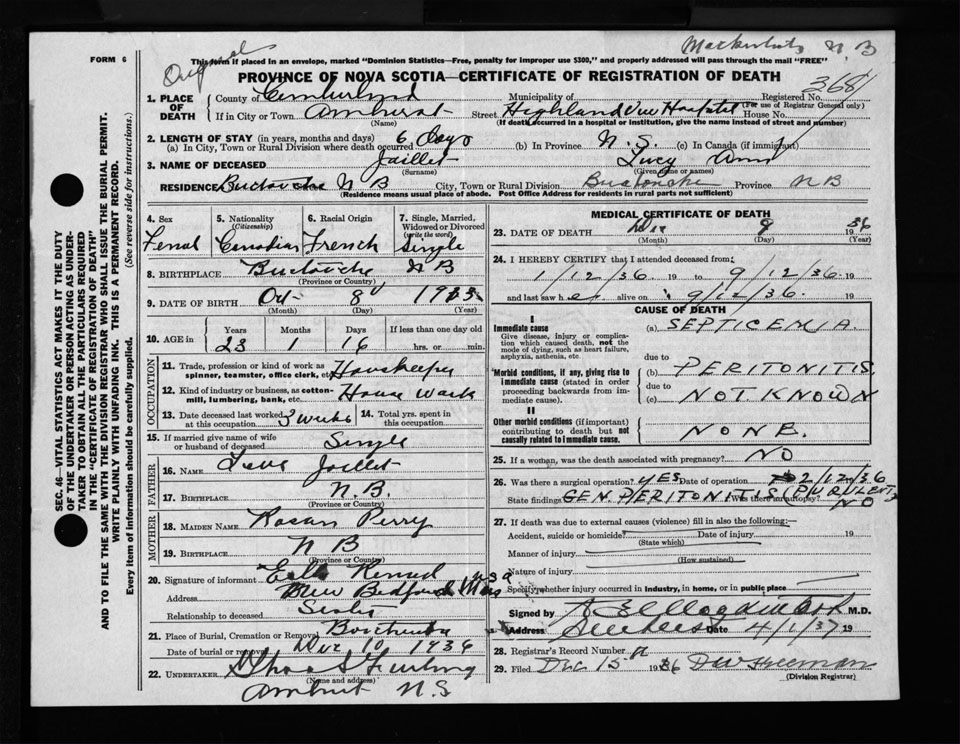 FORM 6
Original
N B
This form if placed in an envelope, marked "Dominion Statistics—Free, penalty for improper use $300," and properly addressed will pass through the mail "FREE"
PROVINCE OF NOVA SCOTIA—CERTIFICATE OF REGISTRATION OF DEATH
1. PLACE OF DEATH
County of Cumberland Municipality of Registered No. 3681
(For use of Registrar General only)
If in City or Town Amherst Street Highland View Hospital House No.
(Name) (If death occurred in a hospital or institution, give the name instead of street and number)
2. LENGTH OF STAY (in years, months and days)
(a) In City, Town or Rural Division where death occurred 6 Days (b) In Province N. S. (c) In Canada (if immigrant)
3. NAME OF DECEASED Jaillet Lucy Ann
(Surname) (Given name or names)
RESIDENCE Buctouche N B City, Town or Rural Division Buctouche Province N B
(Residence means usual place of abode. Post Office Address for residents in rural parts not sufficient)
SEC. 46—VITAL STATISTICS ACT MAKES IT THE DUTY
OF THE UNDERTAKER OR PERSON ACTING AS UNDER-
TAKER TO OBTAIN ALL THE PARTICULARS REQUIRED
IN THE "CERTIFICATE OF REGISTRATION OF DEATH"
AND TO FILE THE SAME WITH THE DIVISION REGISTRAR WHO SHALL ISSUE THE BURIAL PERMIT.
WRITE PLAINLY WITH UNFADING INK. THIS IS A PERMANENT RECORD.
Every item of information should be carefully supplied. (See reverse side for instructions.)
4. Sex
Femal
5. Nationality
(Citizenship)
Canadian
6. Racial Origin
French
7. Single, Married, Widowed or Divorced
(write the word)
Single
8. BIRTHPLACE Buctouche N B
(Province or Country)
9. DATE OF BIRTH Oct 8
(Month) (Day) (Year)
10. AGE in Years Months Days If less than one day old
23 1 16 hrs. or min.
OCCUPATION
11. Trade, profession or kind of work as
spinner, teamster, office clerk, etc. Houskeeper
12. Kind of industry or business, as cotton-
mill, lumbering, bank, etc. House work
13. Date deceased last worked at this occupation 3 weeks
14. Total yrs. spent in this occupation
15. If married give name of wife
or husband of deceased Single
FATHER
16. NAME Jaillet
17. BIRTHPLACE N.B.
(Province or Country)
MOTHER
18. MAIDEN NAME Rosan Perry
19. BIRTHPLACE N B
(Province or Country)
20. Signature of informant
Address New Bedford Mass USA
Relationship to deceased Sister
21. Place of Burial, Cremation or Removal
Date of burial or removal Dec 10 1936
22. UNDERTAKER
(Name and address)
Amherst N.S
MEDICAL CERTIFICATE OF DEATH
23. DATE OF DEATH Dec 9 36
(Month) (Day) (Year)
24. I HEREBY CERTIFY that I attended deceased from:
1/12/36 19 to 9/12/36. 19
and last saw her alive on 9/12/36. 19
CAUSE OF DEATH
I
Immediate cause
Give disease, injury or complica-
tion which caused death, not the
mode of dying, such as heart failure,
asphyxia, asthenia, etc.
(a) SEPTICEMIA
due to
Morbid conditions, if any, giving rise to
immediate cause (stated in order
proceeding backwards from im-
mediate cause).
(b) PERITONITIS
due to
(c) NOT KNOWN
II
Other morbid conditions (if important)
contributing to death but not
causally related to immediate cause.
NONE.
25. If a woman, was the death associated with pregnancy? NO
26. Was there a surgical operation? YES Date of operation 2/12/36
State findings GEN. PERITONITIS (PURULENT) Was there an autopsy? NO
27. If death was due to external causes (violence) fill in also the following:—
Accident, suicide or homicide? Date of injury 19
(State which)
Manner of injury
(How sustained)
Nature of injury
Specify whether injury occurred in industry, in home, or in public place
Signed by M.D.
Address Date 4/1/37 19
28. Registrar's Record No.
29. Filed Dec 15 1936 D W Freeman
(Division Registrar)